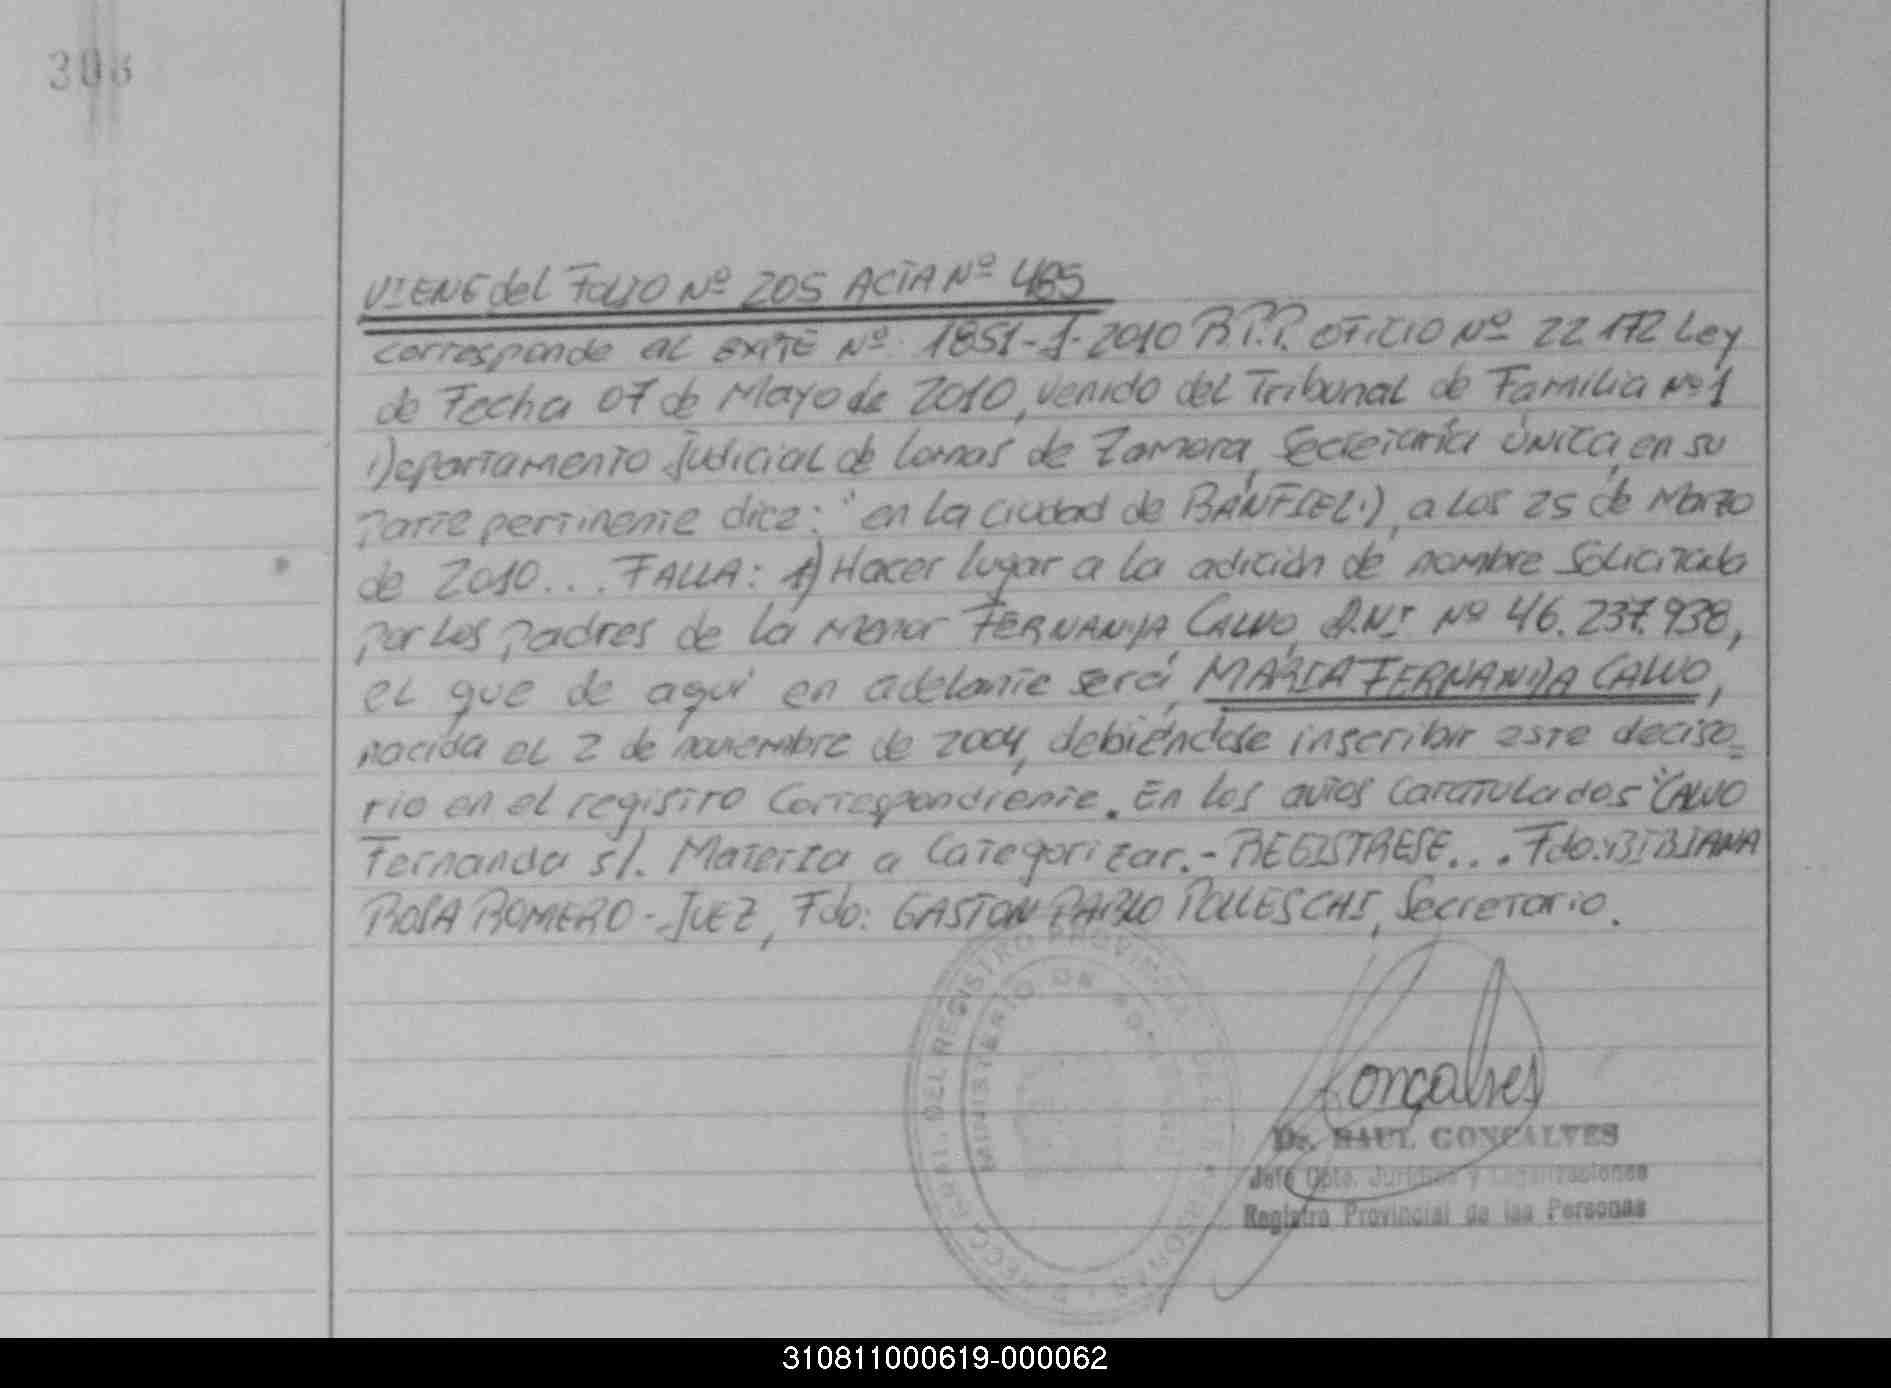 306
VIENE del FOLIO Nº 205 ACTA Nº 485
corresponde al EXPTE Nº 1851-1-2010 R.P.P. OFICIO Nº 22172 Ley
de Fecha 07 de Mayo de 2010, venido del Tribunal de Familia Nº 1
Departamento Judicial de Lomas de Zamora, Secretaría ÚNICA, en su
Parte pertinente dice: "en la ciudad de BANFIELD, a los 25 de Marzo
de 2010... FALLA: 1) Hacer lugar a la adición de nombre solicitada
por los padres de la menor FERNANDA CALVO, D.N.I. Nº 46.237.938,
el que de aquí en adelante será, MARIA FERNANDA CALVO,
nacida el 2 de noviembre de 2004, debiéndose inscribir este deciso=
rio en el registro Correspondiente. En los autos caratulados "CALVO
Fernanda s/. Materia a Categorizar.- REGISTRESE... Fdo: BIBIANA
ROSA ROMERO - JUEZ, Fdo: GASTON PABLO POLLESCHI, Secretario.
DEL REGISTRO PROVINCIAL DE LAS PERSONAS
MINISTERIO DE
Gonçalves
Dr. RAUL GONCALVES
Jefe Dpto. Jurídico y Legalizaciones
Registro Provincial de las Personas
310811000619-000062